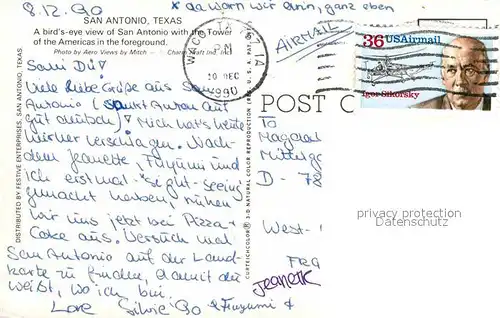 8.12.90
* da warn wir drin, ganz oben
SAN ANTONIO, TEXAS
A bird's-eye view of San Antonio with the Tower
of the Americas in the foreground.
Photo by Aero Views by Mitch
WACO TX
PM
10 DEC
1990
AIRMAIL
36 USAirmail
Igor Sikorsky
DISTRIBUTED BY FESTIVE ENTERPRISES, SAN ANTONIO, TEXAS
CURTEICHCOLOR® 3-D NATURAL COLOR REPRODUCTION
POST C
Du!
Viele liebe Grüße aus San
Antonio (Sankt Anton auf
gut deutsch)! Mich hat's heute
hierher verschlagen. Nach-
dem Jeanette, Fuyumi und
ich erstmal sight-seeing
gemacht haben, ruhen
wir uns jetzt bei Pizza +
Coke aus. Versuch mal
San Antonio auf der Land-
karte zu finden, damit du
weißt, wo ich bin.
Love Silvie 90 & Fuyumi &
Jeanette
To
D - 78
West-
FRG
privacy protection
Datenschutz